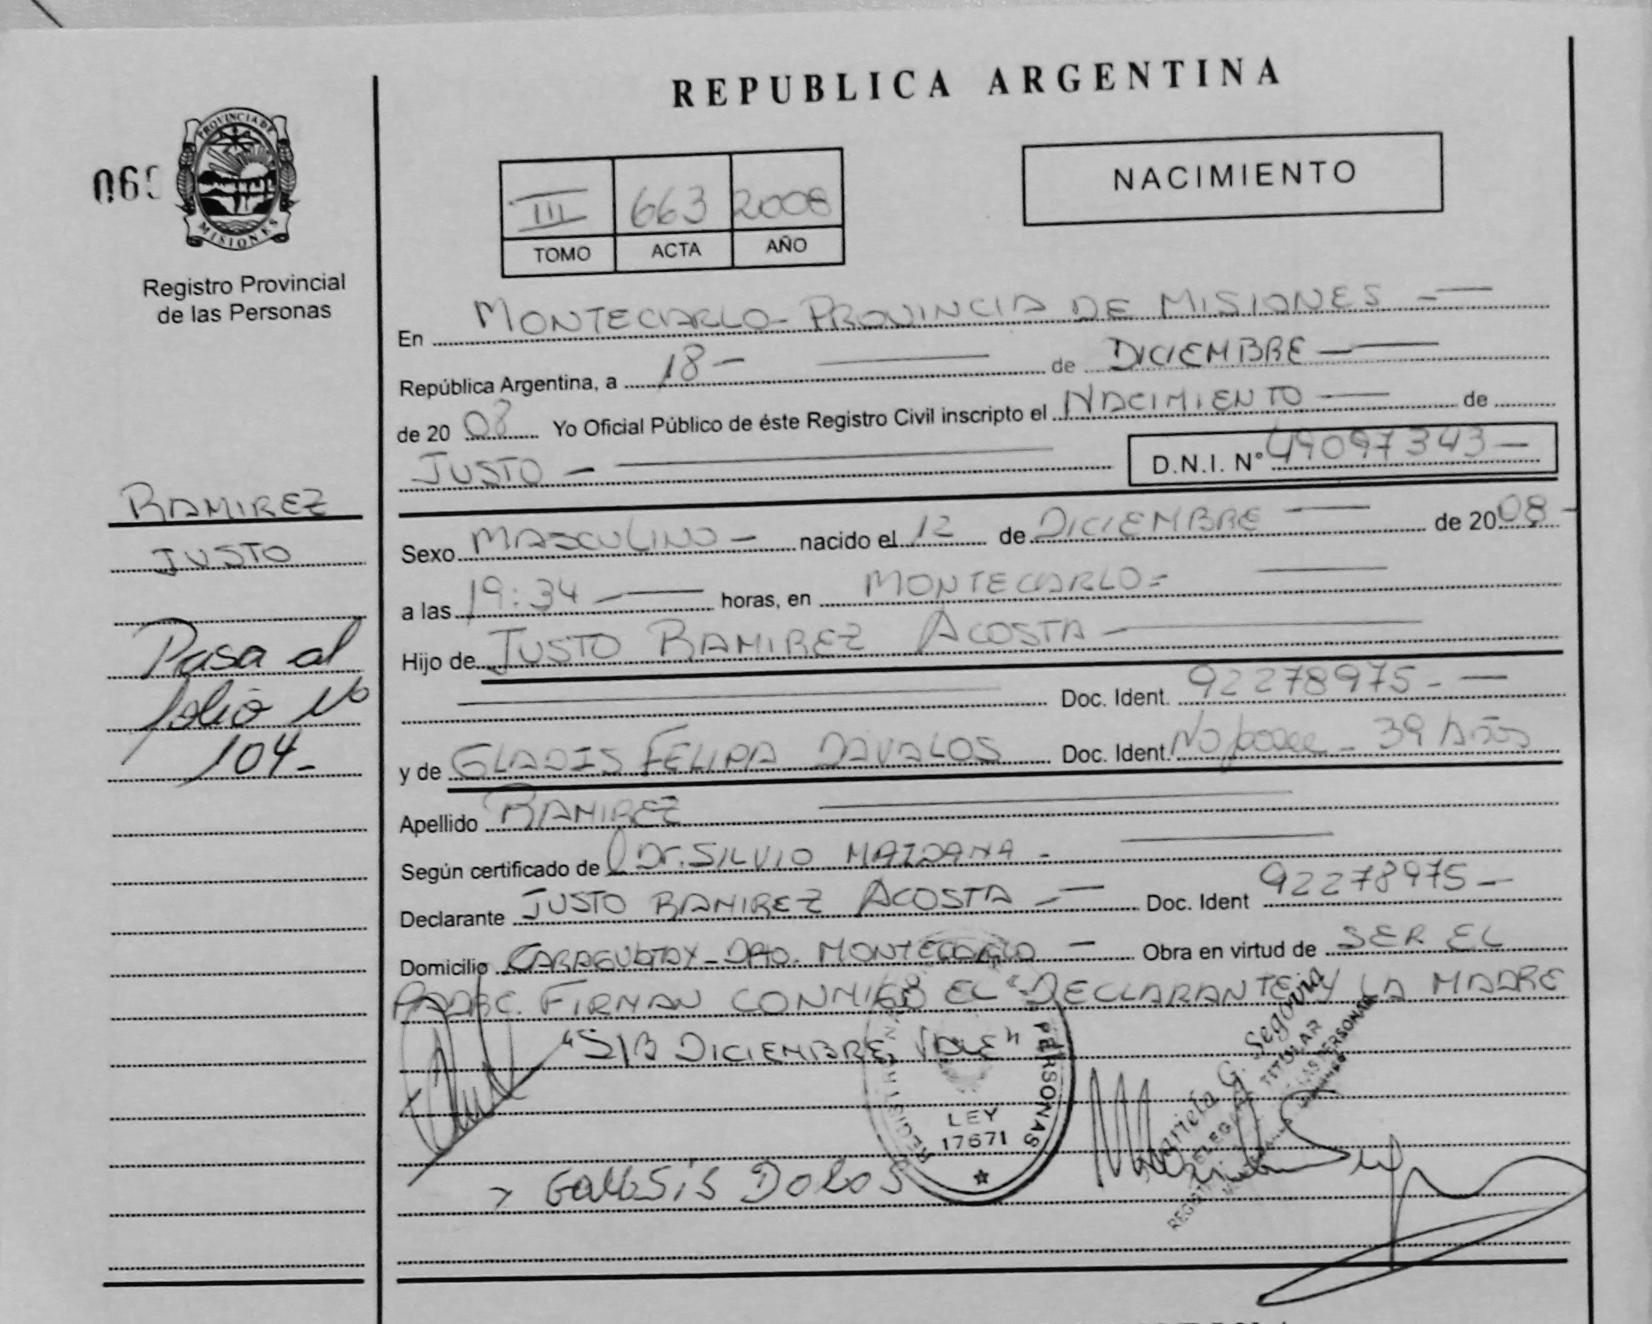 REPUBLICA ARGENTINA
PROVINCIA DE
MISIONES
Registro Provincial
de las Personas
III 663 2008
TOMO ACTA AÑO
NACIMIENTO
En MONTECARLO - PROVINCIA DE MISIONES -
República Argentina, a 18 - de DICIEMBRE -
de 2008 Yo Oficial Público de éste Registro Civil inscripto el NACIMIENTO de
JUSTO - D.N.I. N° 49097343 -
RAMIREZ
JUSTO
Pasa al
folio No
104 -
Sexo MASCULINO - nacido el 12 de DICIEMBRE de 2008 -
a las 19:34 - horas, en MONTECARLO =
Hijo de JUSTO RAMIREZ ACOSTA -
Doc. Ident. 92278975 - -
y de GLADIS FELIPA DAVALOS Doc. Ident. No posee - 39 AÑOS
Apellido RAMIREZ
Según certificado de Dr. SILVIO MAIDANA -
Declarante JUSTO RAMIREZ ACOSTA - Doc. Ident 92278975 -
Domicilio CARAGUATAY - DPTO. MONTECARLO - Obra en virtud de SER EL
PADRE. FIRMAN CONMIGO EL "DECLARANTE Y LA MADRE
"S/B DICIEMBRE, VALE"
PERSONAS
LEY
17671
Mariela G. Segovia
TITULAR